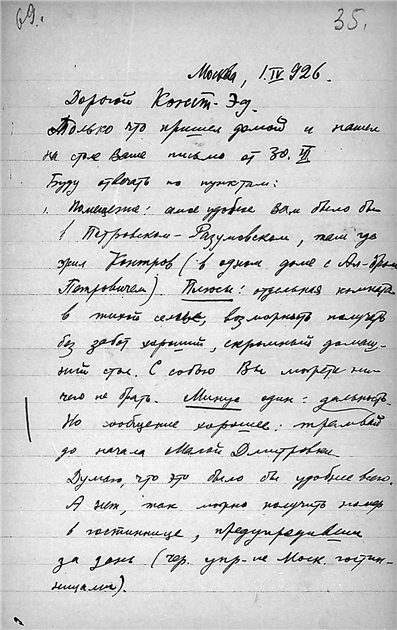 69.
35.
Москва, 1.IV 926.
Дорогой Конст. Эд.
Только что пришел домой и нашел
на столе Ваше письмо от 30.
Буду отвечать по пунктам:
1. Помещение: самое удобное Вам было бы
в Петровском-Разумовском, там где
жил Контров (в одном доме с
Петровичем) Плюсы: отдельная комната
в тихой семье, возможность получать
без забот хороший, скромный домаш-
ний стол. С собою Вы можете ни-
чего не брать. Минус один: дальность.
Но сообщение хорошее: трамвай
до начала Малой Дмитровки
Думаю, что это было бы удобнее всего.
А нет, так можно получить номер
в гостиннице, предупредивши
за день (чер. упр-ие Моск. гостин-
ницами).